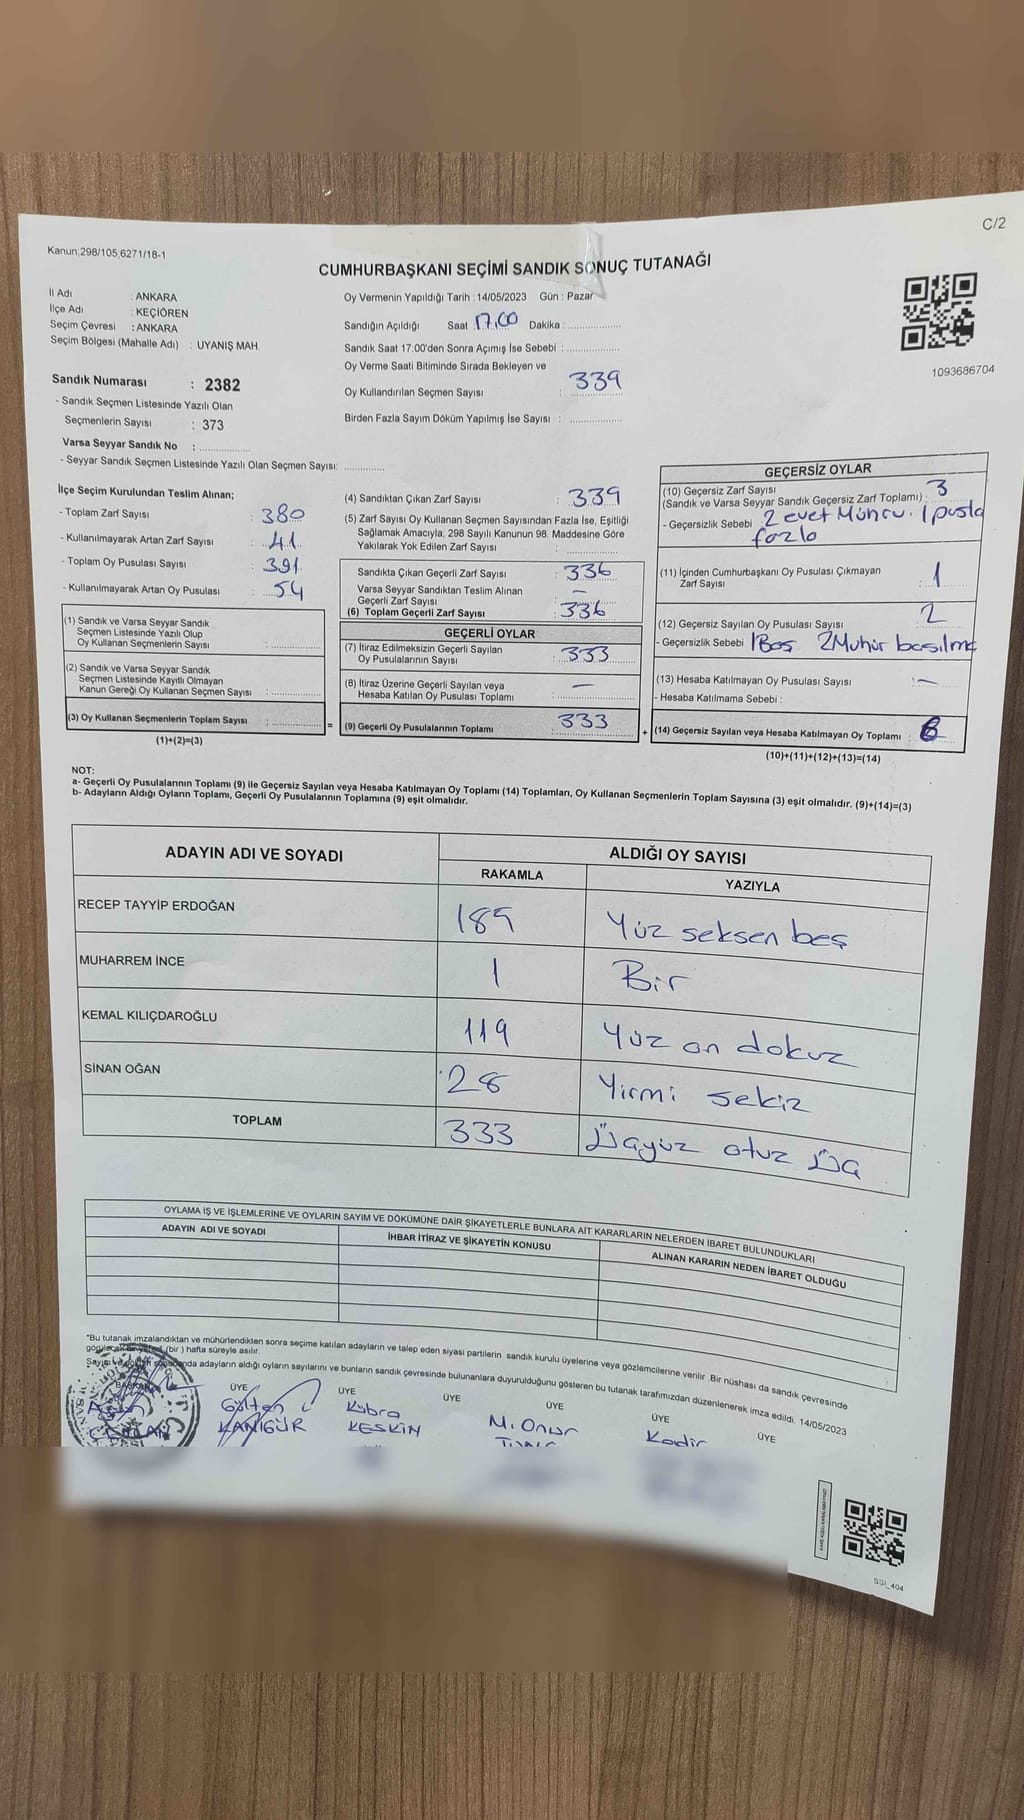 C/2
Kanun:298/105,6271/18-1
CUMHURBAŞKANI SEÇİMİ SANDIK SONUÇ TUTANAĞI
İl Adı : ANKARA
İlçe Adı : KEÇİÖREN
Seçim Çevresi : ANKARA
Seçim Bölgesi (Mahalle Adı) : UYANIŞ MAH.
Sandık Numarası : 2382
- Sandık Seçmen Listesinde Yazılı Olan
Seçmenlerin Sayısı : 373
Varsa Seyyar Sandık No : ..............
- Seyyar Sandık Seçmen Listesinde Yazılı Olan Seçmen Sayısı: ............
Oy Vermenin Yapıldığı Tarih : 14/05/2023 Gün : Pazar
Sandığın Açıldığı Saat 17.00 Dakika : ................
Sandık Saat 17:00'den Sonra Açımış İse Sebebi : ................
Oy Verme Saati Bitiminde Sırada Bekleyen ve
Oy Kullandırılan Seçmen Sayısı : 339
Birden Fazla Sayım Döküm Yapılmış İse Sayısı : ................
1093686704
İlçe Seçim Kurulundan Teslim Alınan;
- Toplam Zarf Sayısı : 380
- Kullanılmayarak Artan Zarf Sayısı : 41
- Toplam Oy Pusulası Sayısı : 391
- Kullanılmayarak Artan Oy Pusulası : 54
(1) Sandık ve Varsa Seyyar Sandık
Seçmen Listesinde Yazılı Olup
Oy Kullanan Seçmenlerin Sayısı : ..............
(2) Sandık ve Varsa Seyyar Sandık
Seçmen Listesinde Kayıtlı Olmayan
Kanun Gereği Oy Kullanan Seçmen Sayısı : ..............
(3) Oy Kullanan Seçmenlerin Toplam Sayısı : ..............
(1)+(2)=(3)
=
(4) Sandıktan Çıkan Zarf Sayısı : 339
(5) Zarf Sayısı Oy Kullanan Seçmen Sayısından Fazla İse, Eşitliği
Sağlamak Amacıyla, 298 Sayılı Kanunun 98. Maddesine Göre
Yakılarak Yok Edilen Zarf Sayısı : ..............
Sandıkta Çıkan Geçerli Zarf Sayısı : 336
Varsa Seyyar Sandıktan Teslim Alınan
Geçerli Zarf Sayısı : –
(6) Toplam Geçerli Zarf Sayısı : 336
GEÇERLİ OYLAR
(7) İtiraz Edilmeksizin Geçerli Sayılan
Oy Pusulalarının Sayısı : 333
(8) İtiraz Üzerine Geçerli Sayılan veya
Hesaba Katılan Oy Pusulası Toplamı : –
(9) Geçerli Oy Pusulalarının Toplamı : 333
+
GEÇERSİZ OYLAR
(10) Geçersiz Zarf Sayısı
(Sandık ve Varsa Seyyar Sandık Geçersiz Zarf Toplamı) : 3
- Geçersizlik Sebebi : 2 evet Mührü. 1 pusla
fazla
(11) İçinden Cumhurbaşkanı Oy Pusulası Çıkmayan
Zarf Sayısı : 1
(12) Geçersiz Sayılan Oy Pusulası Sayısı : 2
- Geçersizlik Sebebi 1Boş 2Mühür basılma
(13) Hesaba Katılmayan Oy Pusulası Sayısı : –
- Hesaba Katılmama Sebebi :
(14) Geçersiz Sayılan veya Hesaba Katılmayan Oy Toplamı : 6
(10)+(11)+(12)+(13)=(14)
NOT:
a- Geçerli Oy Pusulalarının Toplamı (9) ile Geçersiz Sayılan veya Hesaba Katılmayan Oy Toplamı (14) Toplamları, Oy Kullanan Seçmenlerin Toplam Sayısına (3) eşit olmalıdır. (9)+(14)=(3)
b- Adayların Aldığı Oyların Toplamı, Geçerli Oy Pusulalarının Toplamına (9) eşit olmalıdır.
ADAYIN ADI VE SOYADI ALDIĞI OY SAYISI
RAKAMLA YAZIYLA
RECEP TAYYİP ERDOĞAN 185 Yüz seksen beş
MUHARREM İNCE 1 Bir
KEMAL KILIÇDAROĞLU 119 Yüz on dokuz
SİNAN OĞAN 28 Yirmi sekiz
TOPLAM 333 Üçyüz otuz Üç
OYLAMA İŞ VE İŞLEMLERİNE VE OYLARIN SAYIM VE DÖKÜMÜNE DAİR ŞİKAYETLERLE BUNLARA AİT KARARLARIN NELERDEN İBARET BULUNDUKLARI
ADAYIN ADI VE SOYADI İHBAR İTİRAZ VE ŞİKAYETİN KONUSU ALINAN KARARIN NEDEN İBARET OLDUĞU
*Bu tutanak imzalandıktan ve mühürlendikten sonra seçime katılan adayların ve talep eden siyasi partilerin sandık kurulu üyelerine veya gözlemcilerine verilir .Bir nüshası da sandık çevresinde
(bir ) hafta süreyle asılır.
adayların aldığı oyların sayılarını ve bunların sandık çevresinde bulunanlara duyurulduğunu gösteren bu tutanak tarafımızdan düzenlenerek imza edildi. 14/05/2023
BAŞKAN ÜYE ÜYE ÜYE ÜYE ÜYE ÜYE
Gülten Kübra M. Onur Kadir
KANIGÜR KESKİN
SSI_404